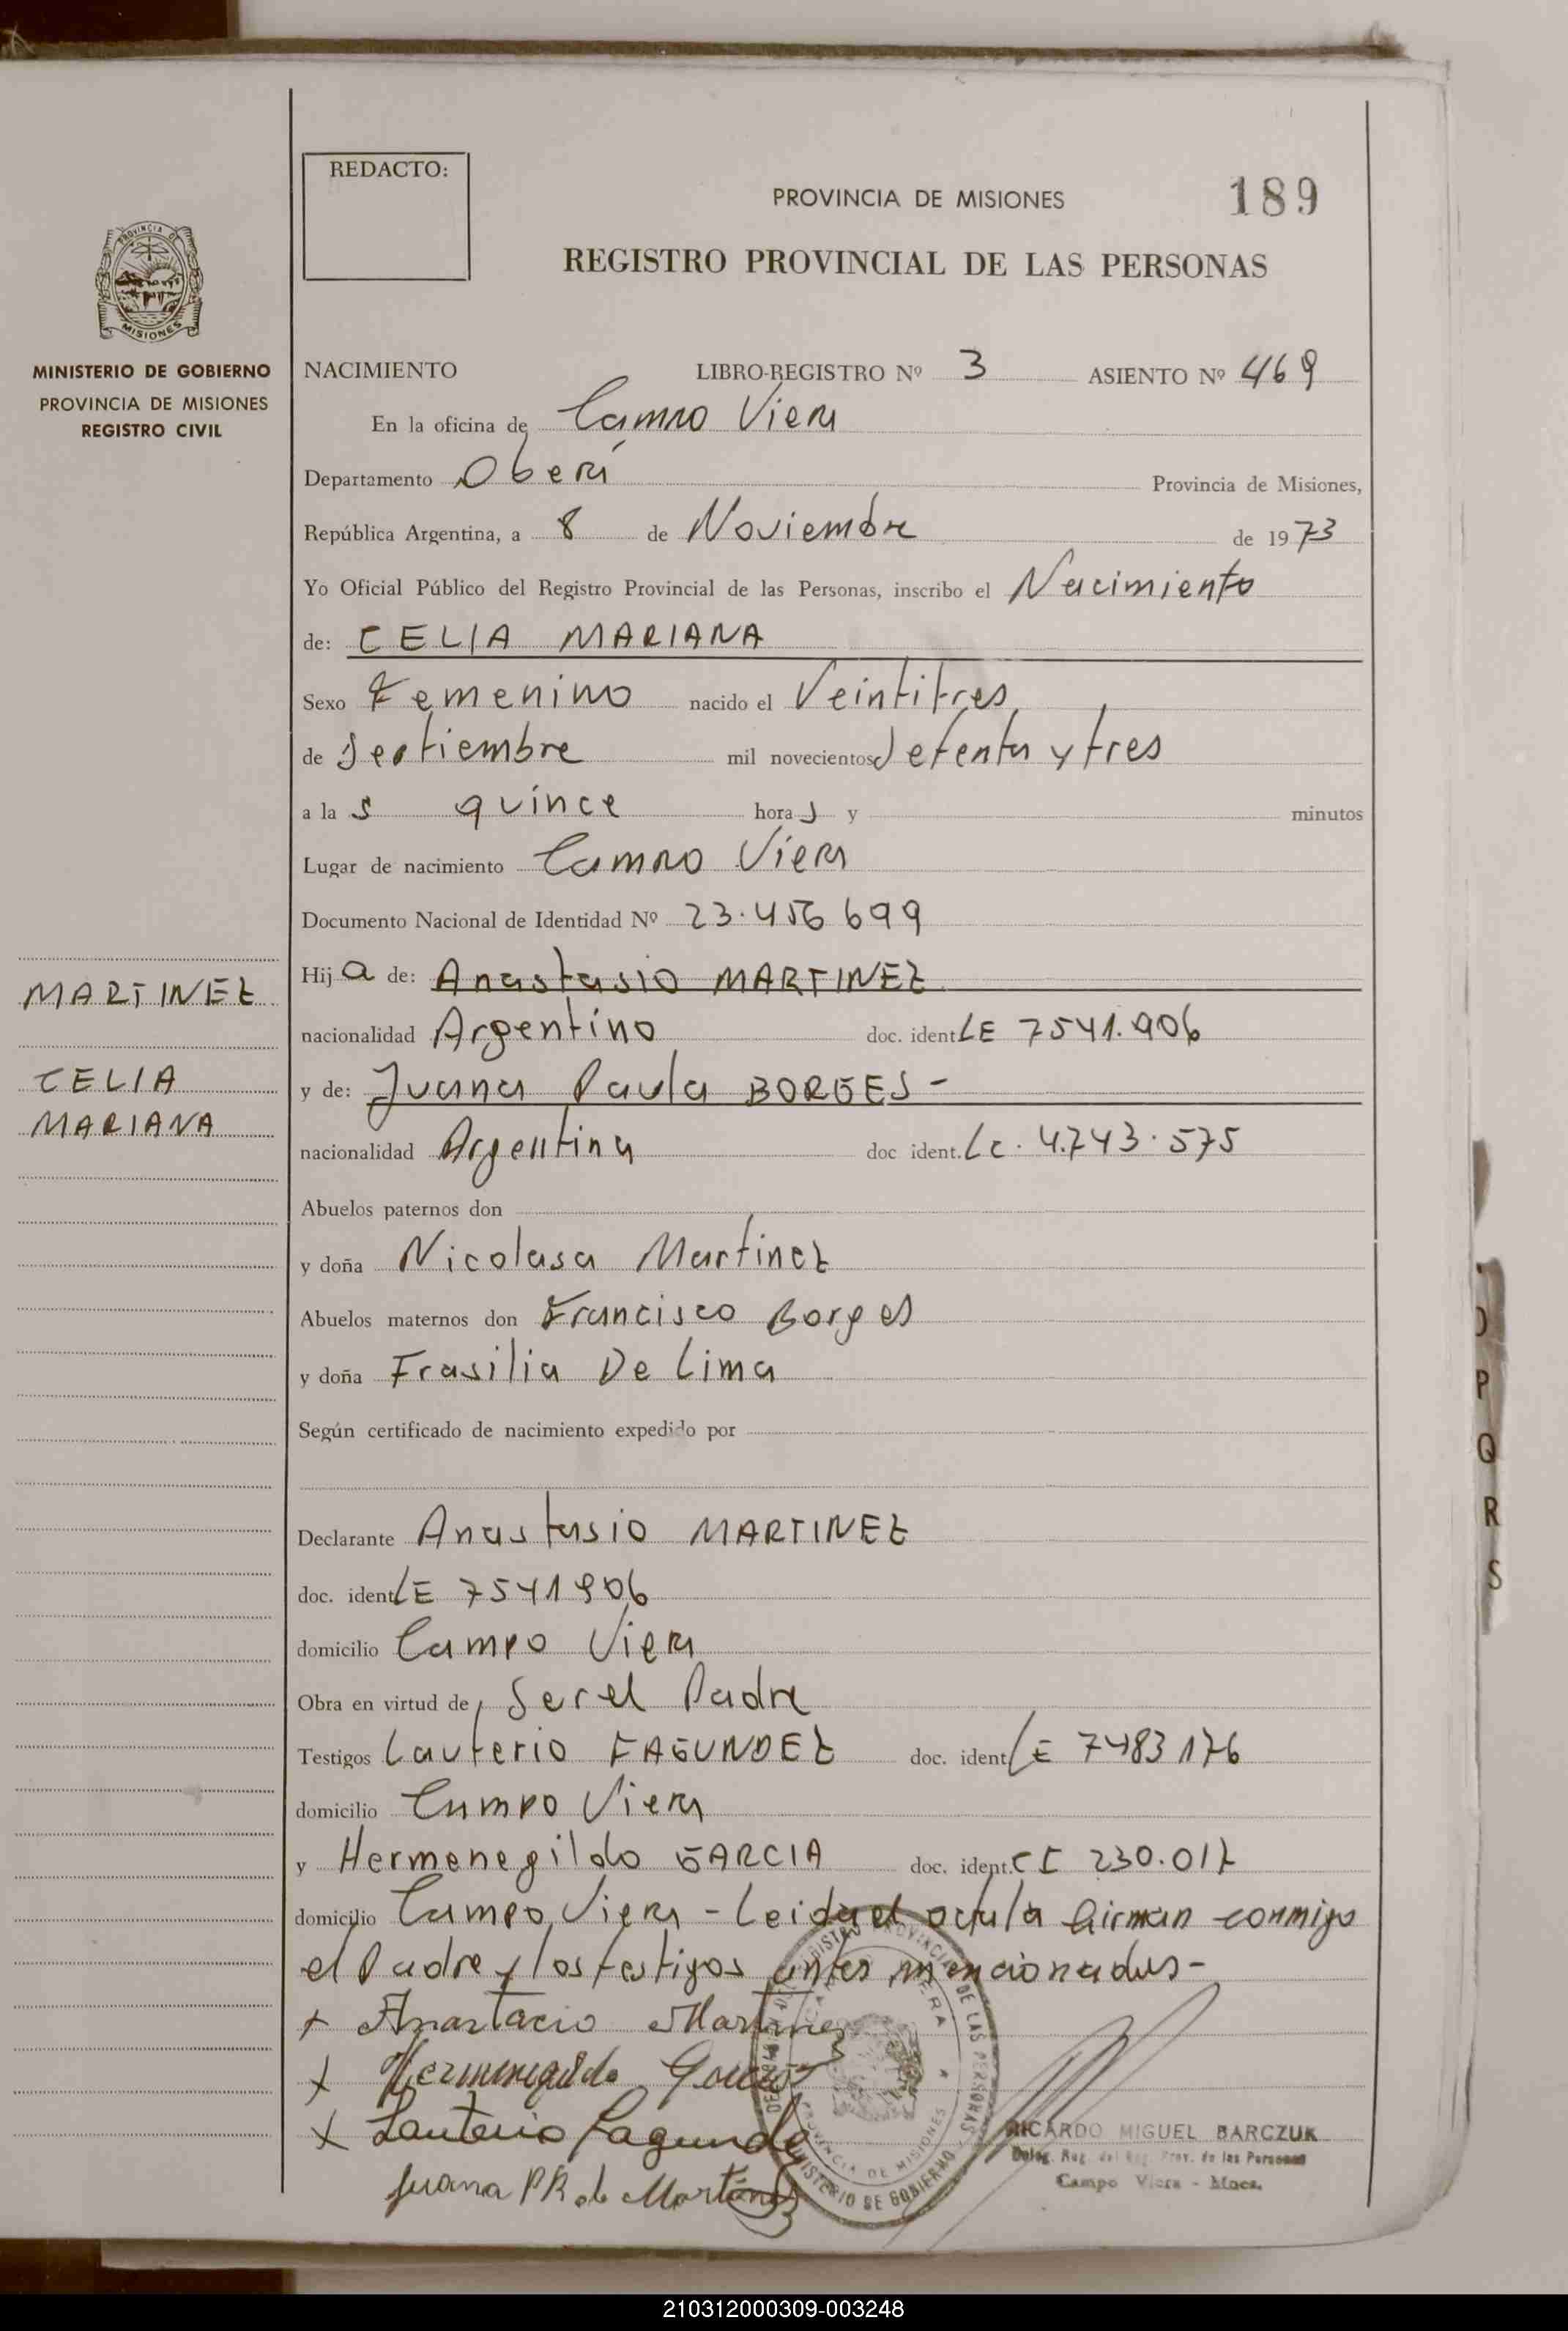 REDACTO:
PROVINCIA DE MISIONES
189
REGISTRO PROVINCIAL DE LAS PERSONAS
PROVINCIA DE
MISIONES
MINISTERIO DE GOBIERNO
PROVINCIA DE MISIONES
REGISTRO CIVIL
NACIMIENTO LIBRO-REGISTRO Nº 3 ASIENTO Nº 469
En la oficina de Campo Viera
Departamento Oberá Provincia de Misiones,
República Argentina, a 8 de Noviembre de 1973
Yo Oficial Público del Registro Provincial de las Personas, inscribo el Nacimiento
de: CELIA MARIANA
Sexo Femenino nacido el Veintitres
de Septiembre mil novecientos Setenta y tres
a la s quince hora s y minutos
Lugar de nacimiento Campo Viera
Documento Nacional de Identidad Nº 23.456 699
Hij a de: Anastasio MARTINEZ
MARTINEZ
nacionalidad Argentino doc. ident. LE 7541.906
CELIA
y de: Juana Paula BORGES -
MARIANA
nacionalidad Argentina doc ident. Lc. 4.743.575
Abuelos paternos don
y doña Nicolasa Martinez
Abuelos maternos don Francisco Borges
y doña Frasilia De Lima
Según certificado de nacimiento expedido por
Declarante Anastasio MARTINEZ
doc. ident. LE 7541906
domicilio Campo Viera
Obra en virtud de Ser el Padre
Testigos Lauterio FAGUNDEZ doc. ident. LE 7483176
domicilio Campo Viera
y Hermenegildo GARCIA doc. ident. CI 230.017
domicilio Campo Viera - Leida el acta la firman conmigo
el Padre y los testigos antes mencionados-
+ Anastacio Martinez
x Hermenegildo
x Lauterio Fagundez
Juana P B. de Martinez
RICARDO MIGUEL BARCZUK
Deleg. Reg. del Reg. Prov. de las Personas
Campo Viera - Mnes.
REGISTRO PROVINCIAL DE LAS PERSONAS
MINISTERIO DE GOBIERNO
PROVINCIA DE MISIONES
P
Q
R
S
210312000309-003248